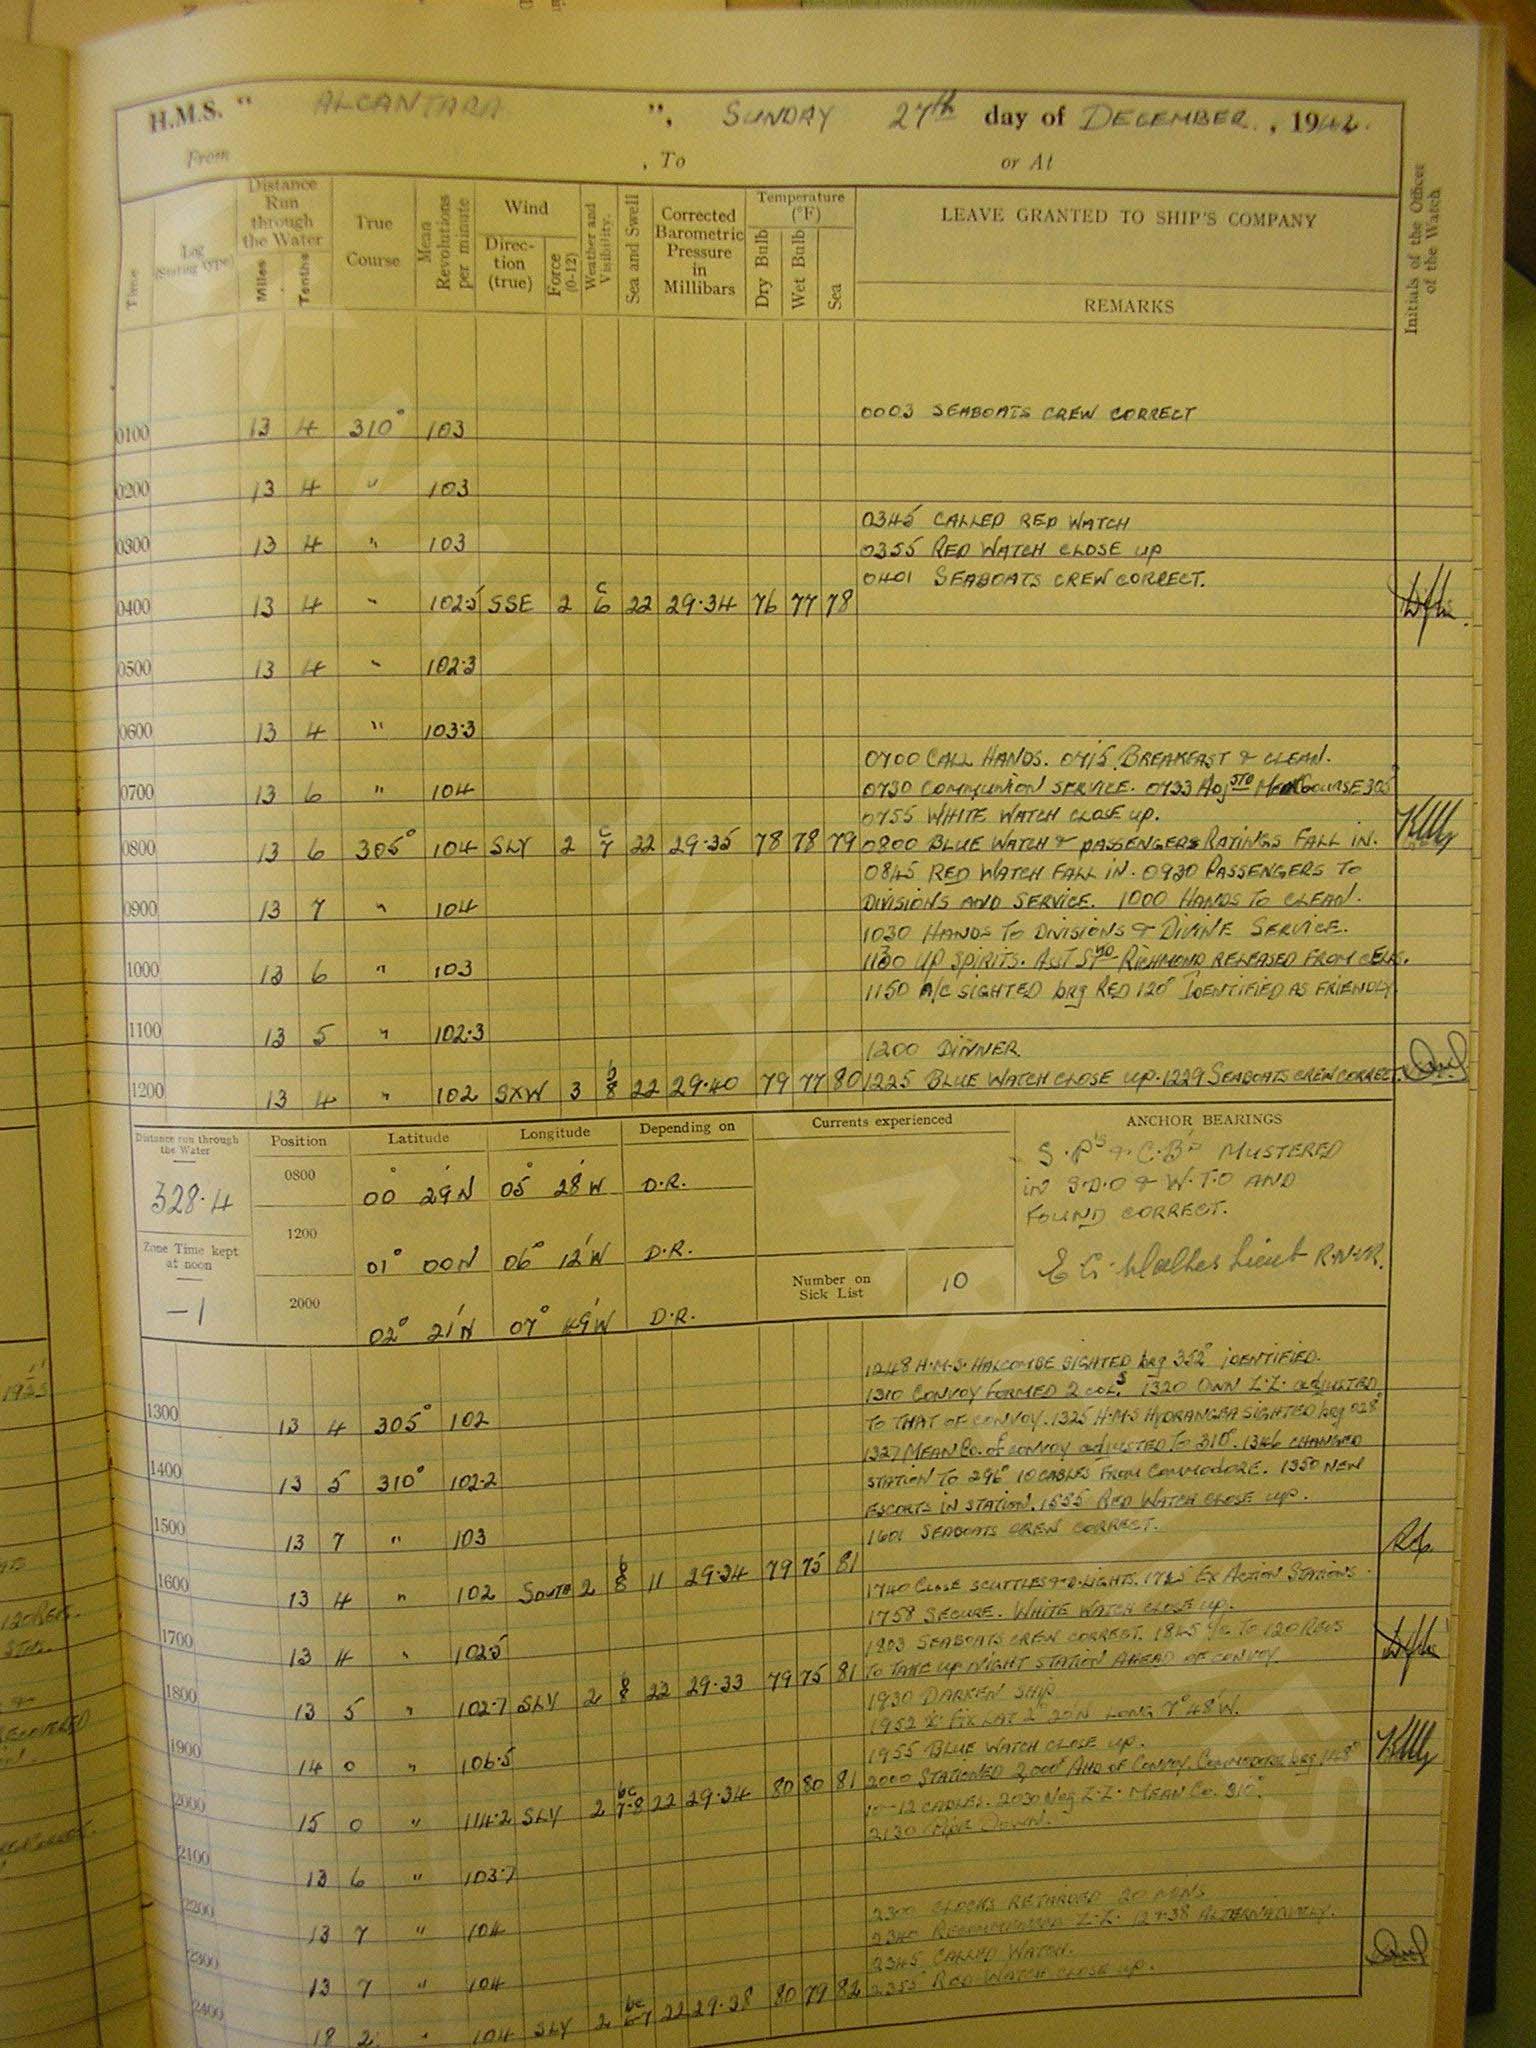 H.M.S. " ALCANTARA ", SUNDAY 27th day of DECEMBER, 1942.
From , To or At
Time
Log (Stating type)
Distance Run through the Water
Miles Tenths
True Course
Mean Revolutions per minute
Wind
Direction (true)
Force (0-12)
Weather and Visibility.
Sea and Swell
Corrected Barometric Pressure in Millibars
Temperature (°F)
Dry Bulb Wet Bulb Sea
LEAVE GRANTED TO SHIP'S COMPANY
REMARKS
Initials of the Officer of the Watch
0003 SEABOATS CREW CORRECT
0100 13 4 310° 103
0200 13 4 " 103
0345 CALLED RED WATCH
0300 13 4 " 103
0355 RED WATCH CLOSE UP
0401 SEABOATS CREW CORRECT.
0400 13 4 " 102.5 SSE 2 c 6 22 29.34 76 77 78
0500 13 4 " 102.3
0600 13 4 " 103.3
0700 CALL HANDS. 0715 BREAKFAST & CLEAN.
0700 13 6 " 104
0730 COMMUNION SERVICE. 0733 Adjstd Mean COURSE 305°
0755 WHITE WATCH CLOSE UP.
0800 13 6 305° 104 SLY 2 c 7 22 29.35 78 78 79
0800 BLUE WATCH & PASSENGERS RATINGS FALL IN.
0845 RED WATCH FALL IN. 0930 PASSENGERS TO
0900 13 7 " 104
DIVISIONS AND SERVICE. 1000 HANDS TO CLEAN.
1030 HANDS TO DIVISIONS & DIVINE SERVICE.
1000 13 6 " 103
1130 UP SPIRITS. ASST STWD RICHMOND RELEASED FROM CELLS.
1150 A/C SIGHTED brg RED 120° IDENTIFIED AS FRIENDLY
1100 13 5 " 102.3
1200 DINNER.
1200 13 4 " 102 SXW 3 b 8 22 29.40 79 77 80
1225 BLUE WATCH CLOSE UP. 1229 SEABOATS CREW CORRECT.
Distance run through the Water
328.4
Zone Time kept at noon
-1
Position Latitude Longitude Depending on
0800 00° 29'N 05° 28'W D.R.
1200 01° 00N 06° 12'W D.R.
2000 02° 21'N 07° 49'W D.R.
Currents experienced
Number on Sick List 10
ANCHOR BEARINGS
S.P's & C.B's MUSTERED
IN S.D.O & W.T.O AND
FOUND CORRECT.
Lieut R.N.V.R.
1248 H.M.S. HALCOMBE SIGHTED brg 352° IDENTIFIED.
1310 CONVOY FORMED 2 COLS 1320 OWN Z.Z. adjusted
1300 13 4 305° 102
TO THAT OF CONVOY. 1325 H.M.S HYDRANGEA SIGHTED brg 028°
1327 MEAN Co. of CONVOY adjusted TO 310°. 1346 CHANGED
1400 13 5 310° 102.2
STATION TO 296° 10 CABLES FROM COMMODORE. 1350 NEW
ESCORTS IN STATION. 1555 RED WATCH CLOSE UP.
1500 13 7 " 103
1601 SEABOATS CREW CORRECT.
1600 13 4 " 102 SOUTH 2 b 8 11 29.34 79 75 81
1740 CLOSE SCUTTLES & D.LIGHTS. 1745 EX ACTION STATIONS.
1758 SECURE. WHITE WATCH CLOSE UP.
1700 13 4 " 102.5
1803 SEABOATS CREW CORRECT. 1845 TO 120 REVS
TO TAKE UP NIGHT STATION AHEAD OF CONVOY.
1800 13 5 " 102.7 SLY 2 b 8 22 29.33 79 75 81
1930 DARKEN SHIP
1952 FIX LAT 2° 20'N LONG 7° 48'W.
1900 14 0 " 106.5
1955 BLUE WATCH CLOSE UP.
2000 STATIONED 2,000x AHD OF CONVOY. COMMODORE brg 148°
2000 15 0 " 114.2 SLY 2 bc 7-8 22 29.34 80 80 81
10-12 CABLES. 2030 Neg Z.Z. MEAN Co. 310°.
2130 DOWN.
2100 13 6 " 103.7
2200 13 7 " 104
2300 CLOCKS RETARDED 20 MINS
2340 RECOMMENCED Z.Z. 12 & 38 ALTERNATIVELY.
2345 CALLED WATCH.
2300 13 7 " 104
2355 RED WATCH CLOSE UP.
2400 18 2 " 104 SLY 2 bc 6-7 22 29.38 80 79 82